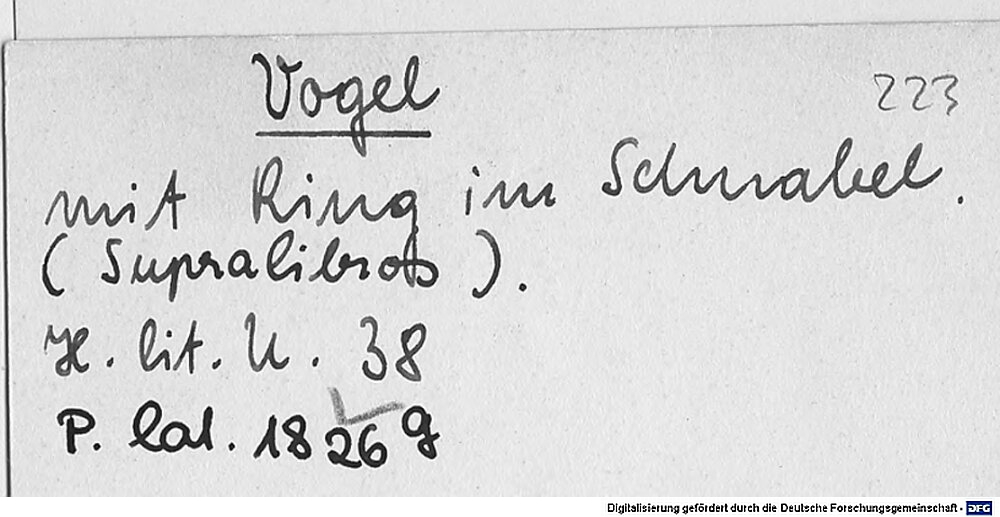 Vogel
223
mit Ring im Schnabel.
(Supralibros).
H. lit. U. 38
P. lat. 1826 g
Digitalisierung gefördert durch die Deutsche Forschungsgemeinschaft - DFG